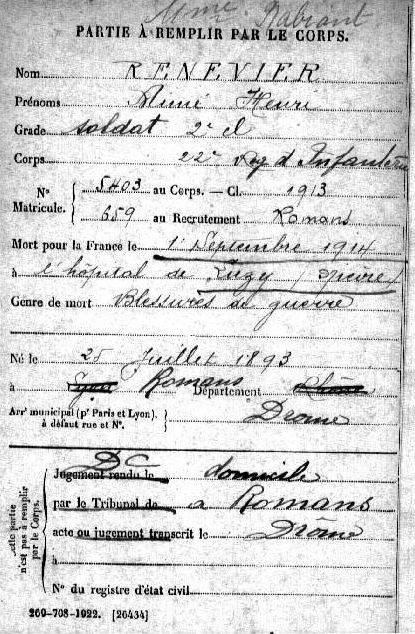 Mme Rabiant
PARTIE À REMPLIR PAR LE CORPS.
Nom RENEVIER
Prénoms Aimé Henri
Grade soldat 2e cl
Corps 22e Reg d'Infanterie
N° Matricule. { 5403 au Corps. — Cl. 1913
659 au Recrutement Romans
Mort pour la France le 1er Septembre 1914
à l'hôpital de Luzy (Nièvre)
Genre de mort Blessures de guerre
Né le 25 Juillet 1893
à Lyon Romans Département Rhône
Arrt municipal (pr Paris et Lyon), à défaut rue et N°. } Drome
Cette partie n'est pas à remplir par le Corps.
DC domicile
Jugement rendu le
par le Tribunal de à Romans
acte ou jugement transcrit le Drôme
à
N° du registre d'état civil
269-708-1922. [26434]